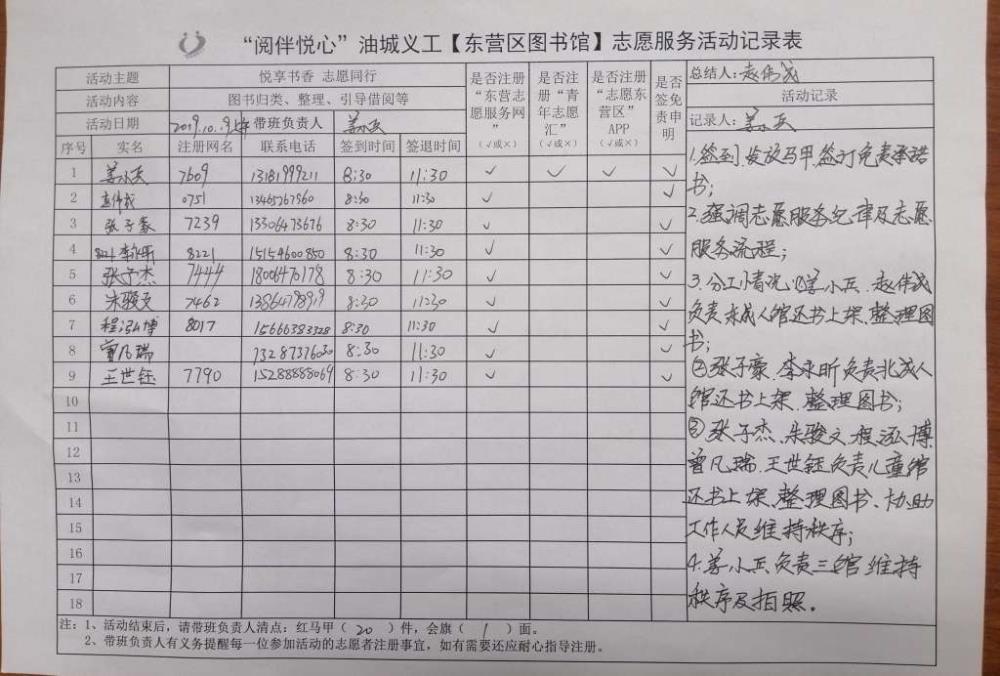 “阅伴悦心”油城义工【东营区图书馆】志愿服务活动记录表
活动主题 悦享书香 志愿同行
活动内容 图书归类、整理、引导借阅等
活动日期 2019.10.19上午 带班负责人 姜小兵
是否注册“东营志愿服务网”(√或×)
是否注册“青年志愿汇”(√或×)
是否注册“志愿东营区”APP(√或×)
是否签免责申明
序号 实名 注册网名 联系电话 签到时间 签退时间
1 姜小兵 7609 13181999211 8:30 11:30 √ √ √ √
2 赵伟成 0751 13465767560 8:30 11:30 √ √
3 张子豪 7239 13306473676 8:30 11:30 √ √
4 8221 8221 15154600850 8:30 11:30 √ √
5 张子杰 7444 18006470178 8:30 11:30 √ √
6 朱骏文 7462 8:30 11:30 √ √
7 程泓博 8017 15666383328 8:30 11:30 √ √
8 曾凡瑞 8:30 11:30 √ √
9 王世钰 7790 15288888069 8:30 11:30 √ √
10
11
12
13
14
15
16
17
18
总结人:赵伟成
活动记录
记录人:姜小兵
1.签到、发放马甲、签订免责承诺
书;
2.强调志愿服务纪律及志愿
服务流程;
3.分工情况①姜小兵、赵伟成
负责成人馆还书上架、整理图
书;
②张子豪、李永昕负责北成人
馆还书上架、整理图书;
③张子杰、朱骏文、程泓博、
曾凡瑞、王世钰负责儿童馆
还书上架、整理图书、协助
工作人员维持秩序;
4.姜小兵负责三馆维持
秩序及拍照。
注:1、活动结束后,请带班负责人清点:红马甲( 20 )件,会旗( 1 )面。
2、带班负责人有义务提醒每一位参加活动的志愿者注册事宜,如有需要还应耐心指导注册。